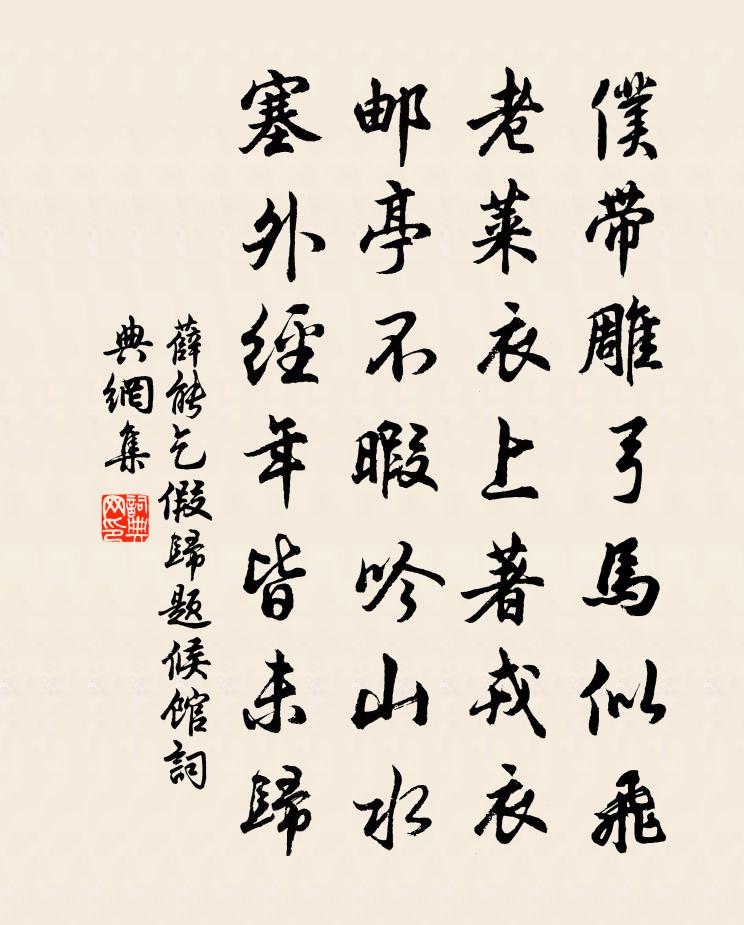 僕带雕弓馬似飛
老萊衣上著戎衣
邮亭不暇吟山水
塞外經年皆未歸
薛能乞假歸题候馆詞
典網集
詞典網印